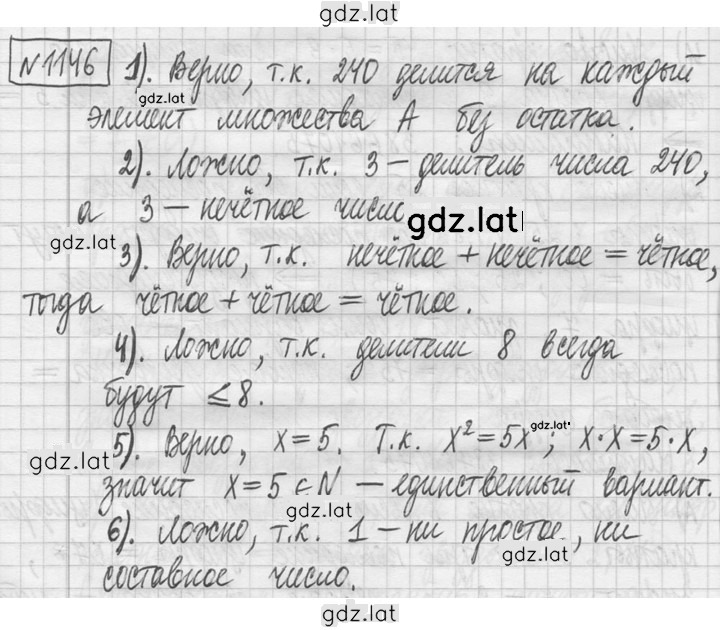 gdz.lat
№1146 1). Верно, т.к. 240 делится на каждый
gdz.lat
элемент множества А без остатка.
2). Ложно, т.к. 3 – делитель числа 240,
а 3 – нечётное число
gdz.lat
gdz.lat
3). Верно, т.к. нечётное + нечётное = чётное,
тогда чётное + чётное = чётное.
4). Ложно, т.к. делители 8 всегда
будут ≤ 8.
gdz.lat
5). Верно, x = 5. Т.к. x² = 5x ; x·x = 5·x,
gdz.lat
значит x = 5 ∈ N – единственный вариант.
gdz.lat
6). Ложно, т.к. 1 – ни простое, ни
gdz.lat
составное число.
gdz.lat